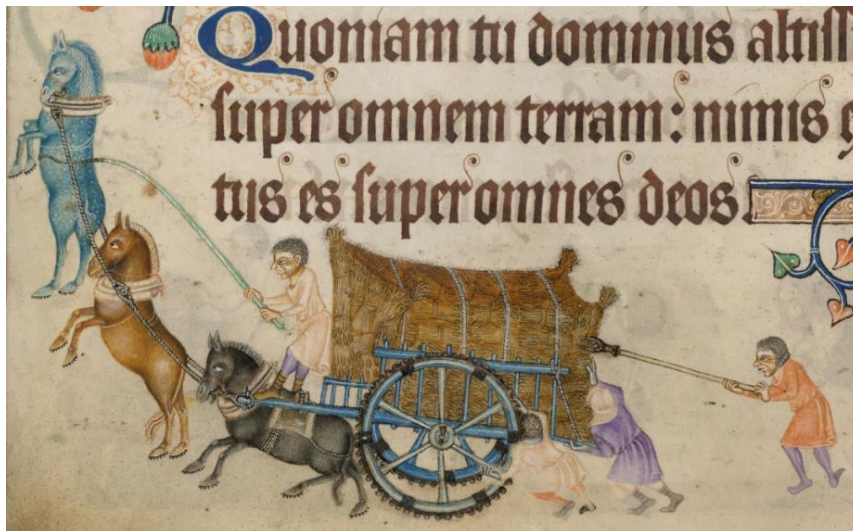 Quoniam tu dominus altiss
super omnem terram: nimis e
tus es super omnes deos.